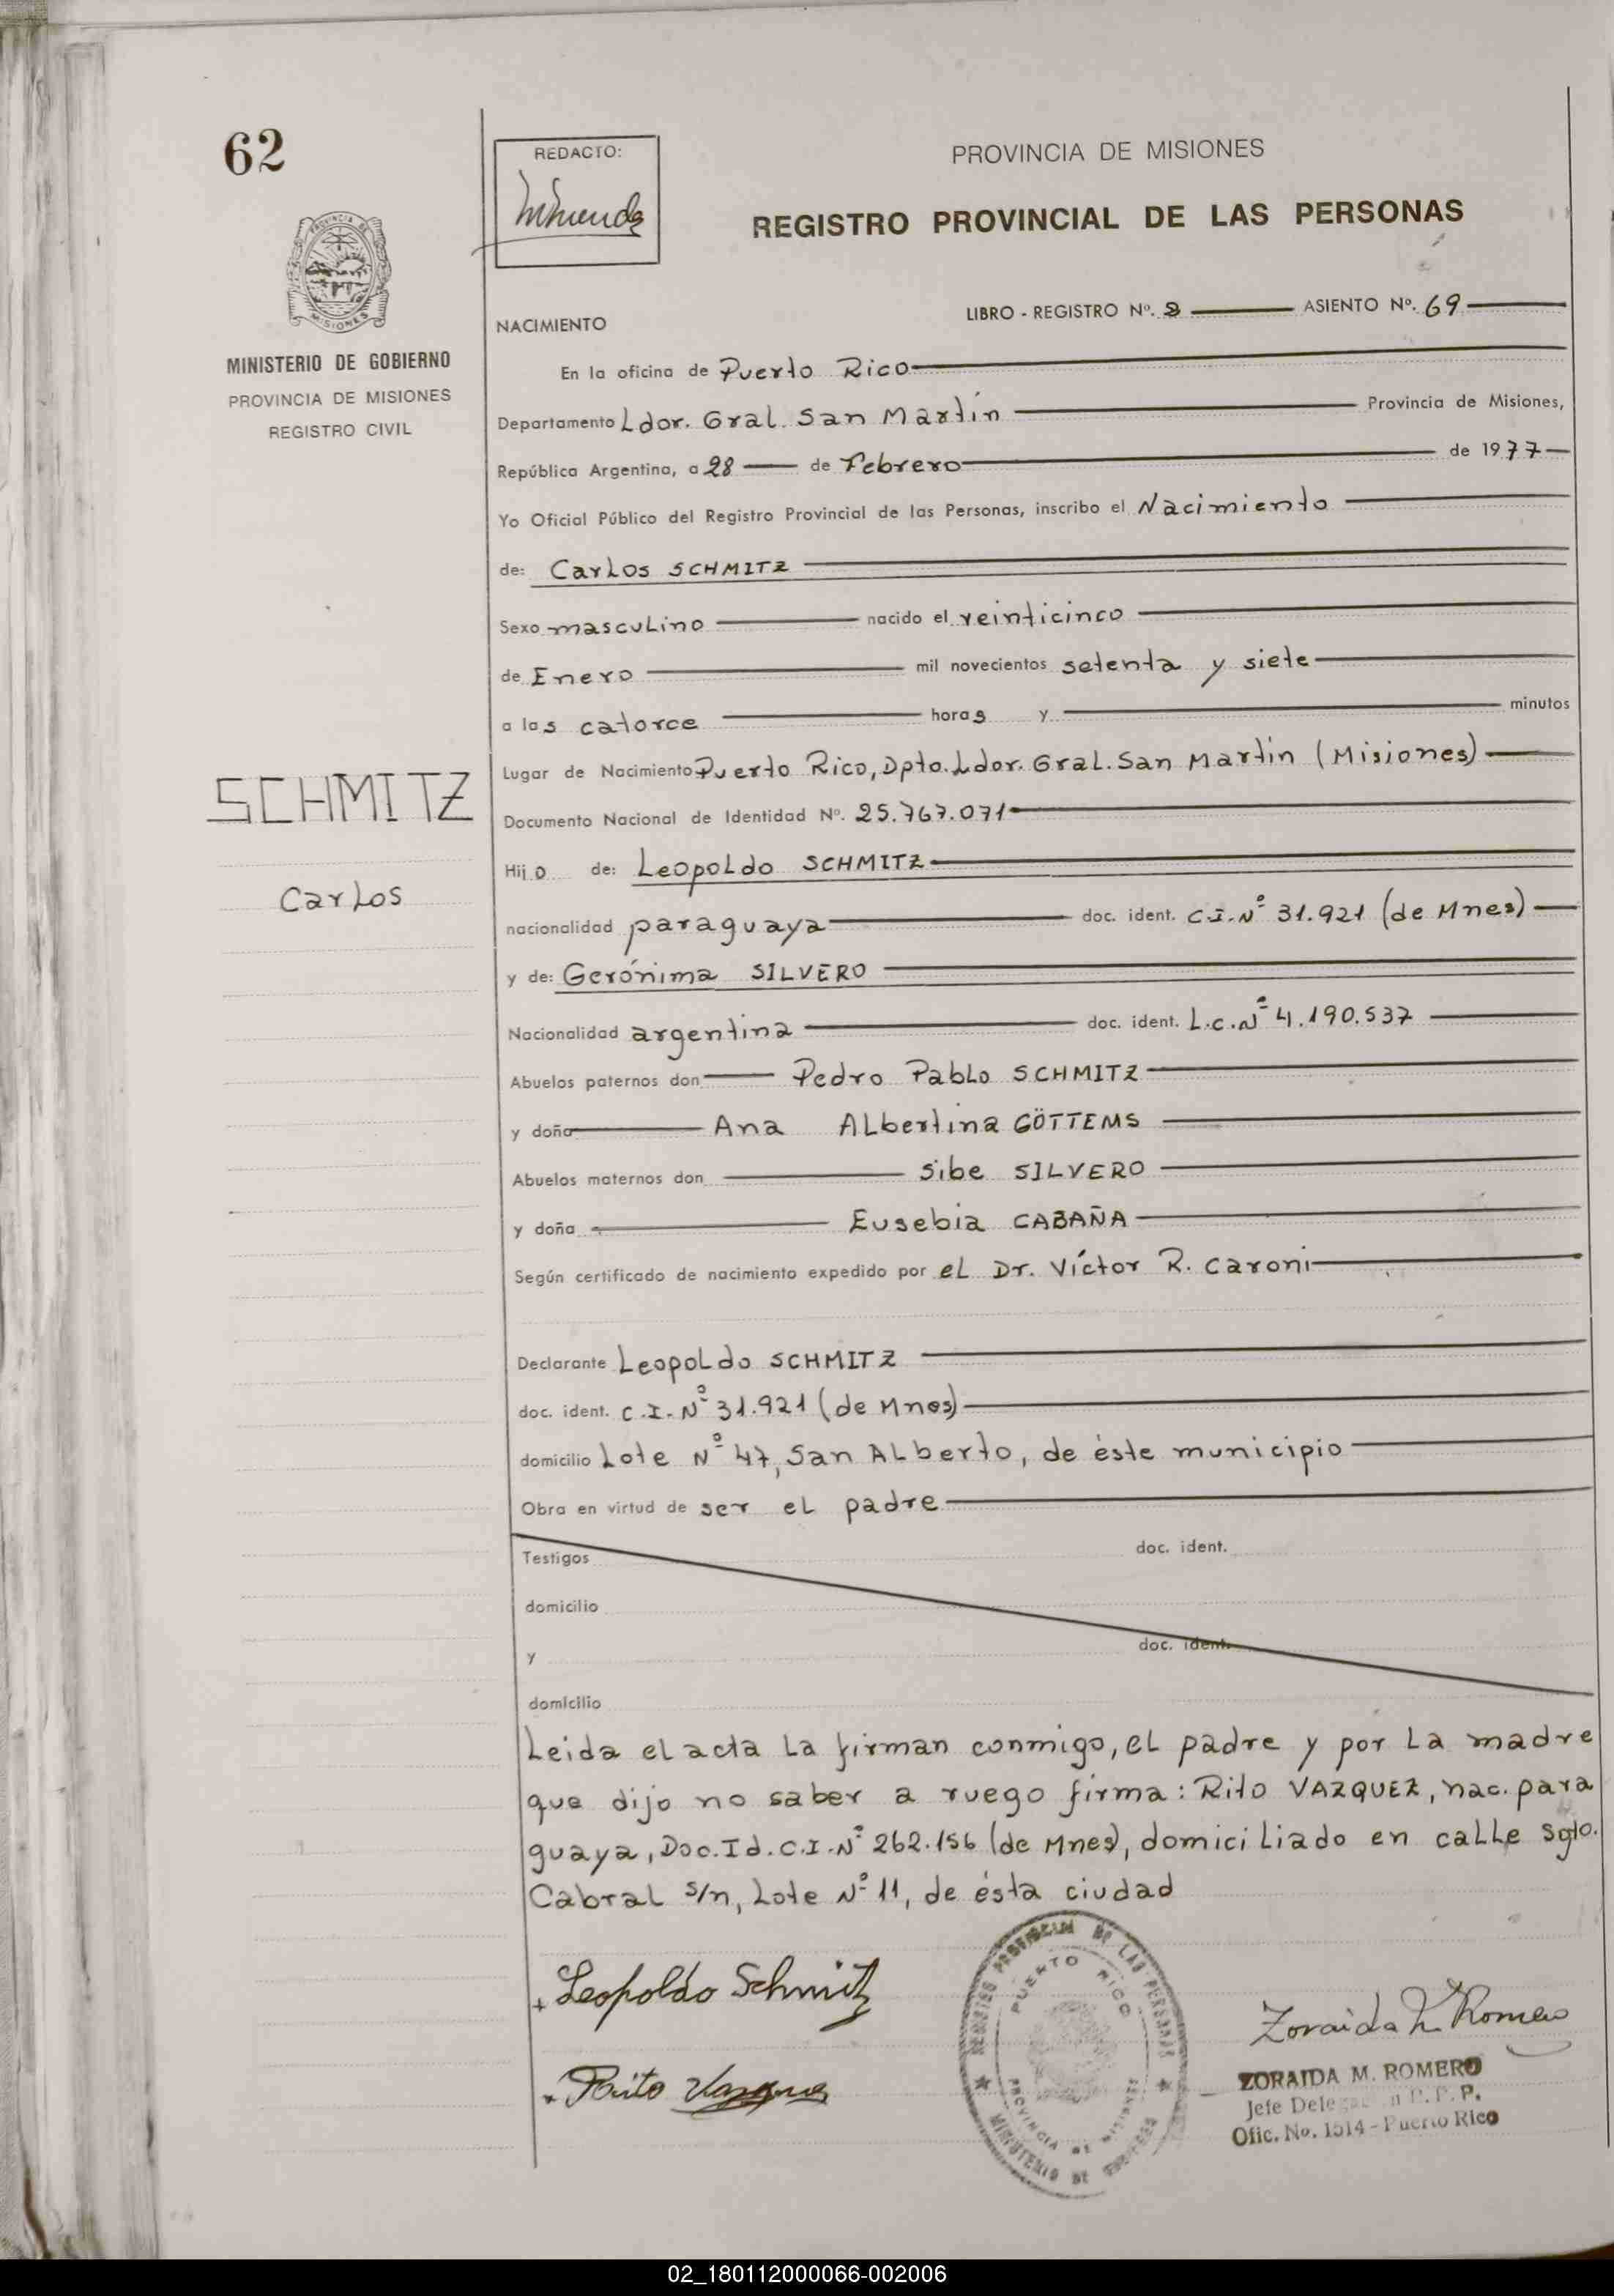 62
PROVINCIA DE MISIONES
MINISTERIO DE GOBIERNO
PROVINCIA DE MISIONES
REGISTRO CIVIL
REDACTO:
PROVINCIA DE MISIONES
REGISTRO PROVINCIAL DE LAS PERSONAS
LIBRO - REGISTRO Nº. 2 ASIENTO Nº. 69
NACIMIENTO
En la oficina de Puerto Rico
Departamento Ldor. Gral. San Martín Provincia de Misiones,
República Argentina, a 28 de Febrero de 1977
Yo Oficial Público del Registro Provincial de las Personas, inscribo el Nacimiento
de: Carlos SCHMITZ
Sexo masculino nacido el veinticinco
de Enero mil novecientos setenta y siete
a las catorce horas y minutos
SCHMITZ
Carlos
Lugar de Nacimiento Puerto Rico, Dpto. Ldor. Gral. San Martín (Misiones)
Documento Nacional de Identidad Nº. 25.767.071
Hijo de: Leopoldo SCHMITZ
nacionalidad paraguaya doc. ident. C.I.Nº 31.921 (de Mnes)
y de: Gerónima SILVERO
Nacionalidad argentina doc. ident. L.C.Nº 4.190.537
Abuelos paternos don Pedro Pablo SCHMITZ
y doña Ana Albertina GÖTTEMS
Abuelos maternos don Sibe SILVERO
y doña Eusebia CABAÑA
Según certificado de nacimiento expedido por el Dr. Víctor R. Caroni
Declarante Leopoldo SCHMITZ
doc. ident. C.I.Nº 31.921 (de Mnes)
domicilio Lote Nº 47, San Alberto, de éste municipio
Obra en virtud de ser el padre
Testigos doc. ident.
domicilio
y doc. ident.
domicilio
Leida el acta la firman conmigo, el padre y por la madre
que dijo no saber a ruego firma: Rito VAZQUEZ, nac. para
guaya, Doc. Id. C.I.Nº 262.156 (de Mnes), domiciliado en calle Sgto.
Cabral s/n, Lote Nº 11, de ésta ciudad
Leopoldo Schmitz
Rito Vazquez
REGISTRO PROVINCIAL DE LAS PERSONAS
PUERTO RICO
PROVINCIA DE MISIONES
MINISTERIO DE GOBIERNO
Zoraida M Romero
ZORAIDA M. ROMERO
Jefe
Ofic. No. 1514 - Puerto Rico
02_180112000066-002006